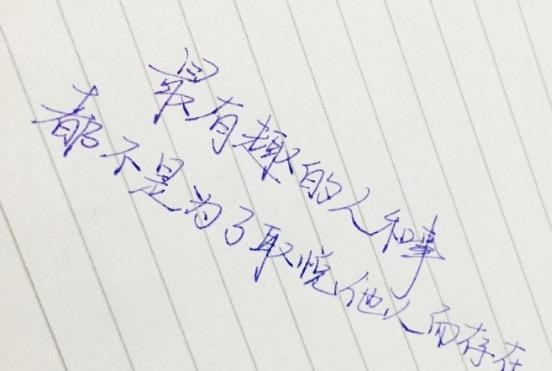 最有趣的人和事
都不是为了取悦他人而存在